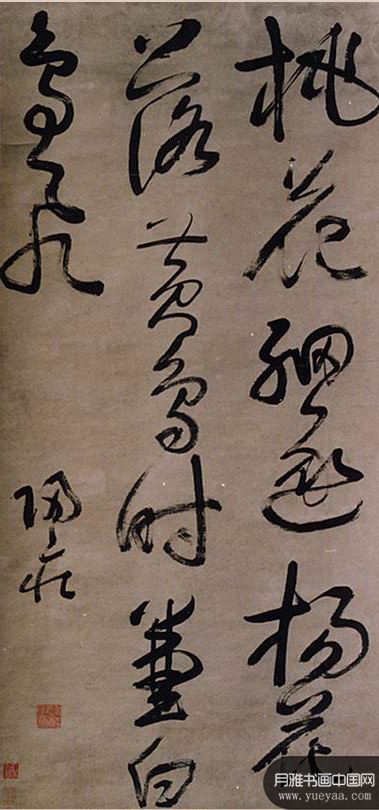 桃花細逐楊花
落黃鳥時兼白
鳥飛
歸莊
月雅书画中国网
www.yueyaa.com